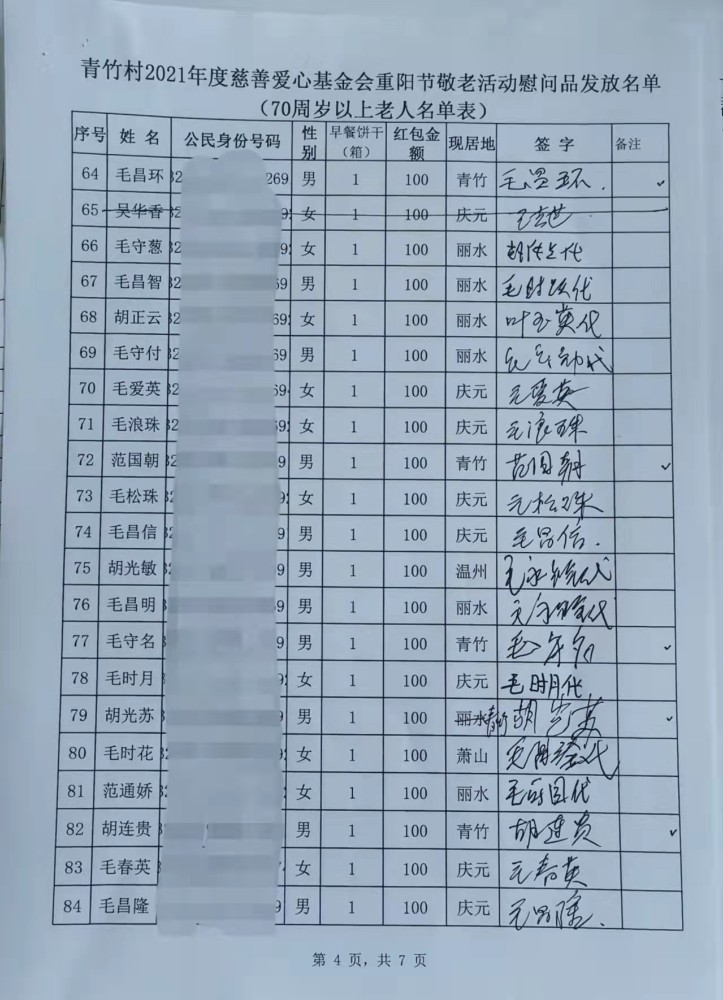 青竹村2021年度慈善爱心基金会重阳节敬老活动慰问品发放名单
（70周岁以上老人名单表）
序号 姓 名 公民身份号码 性别 早餐饼干（箱） 红包金额 现居地 签 字 备注
64 毛昌环 男 1 100 青竹 ✓
65 吴华香 女 1 100 庆元
66 毛守葱 女 1 100 丽水
67 毛昌智 男 1 100 丽水
68 胡正云 女 1 100 丽水 叶玉黄代
69 毛守付 男 1 100 丽水
70 毛爱英 女 1 100 庆元 毛爱英
71 毛浪珠 女 1 100 庆元 毛浪珠
72 范国朝 男 1 100 青竹 范国朝 ✓
73 毛松珠 女 1 100 庆元 毛松珠
74 毛昌信 男 1 100 庆元 毛昌信
75 胡光敏 男 1 100 温州
76 毛昌明 男 1 100 丽水
77 毛守名 男 1 100 青竹 ✓
78 毛时月 女 1 100 庆元 毛时月代
79 胡光苏 男 1 100 丽水 青竹 胡光苏 ✓
80 毛时花 女 1 100 萧山
81 范通娇 女 1 100 丽水
82 胡连贵 男 1 100 青竹 胡连贵 ✓
83 毛春英 女 1 100 庆元 毛春英
84 毛昌隆 男 1 100 庆元 毛昌隆
第 4 页，共 7 页